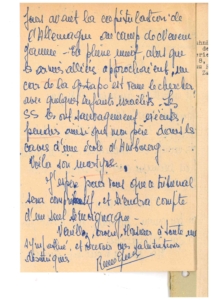 Jours avant la capitulation de
l'Allemagne au camp de
En pleine nuit, alors que
les armées alliées approchaient, un
car de la Gestapo est venu le chercher
avec quelques enfants israélites. Les
SS les ont sauvagement
pendus ainsi que mon père dans les
caves d'une école d'Hambourg.
Voilà son martyre.
J'espère pour vous que ce tribunal
sera compréhensif, et tiendra compte
d'un seul témoignage.
Veuillez croire, Monsieur, à toute ma
sympathie, et recevez mes salutations
distinguées